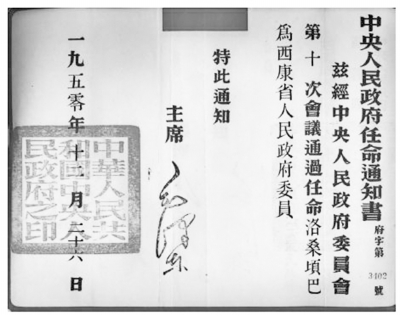 中央人民政府任命通知書
府字第3402號
茲經中央人民政府委員會
第十次會議通過任命洛桑項巴
爲西康省人民政府委員
特此通知
主席
毛澤東
一九五零年十二月二十六日
中華人民共
和國中央人
民政府之印